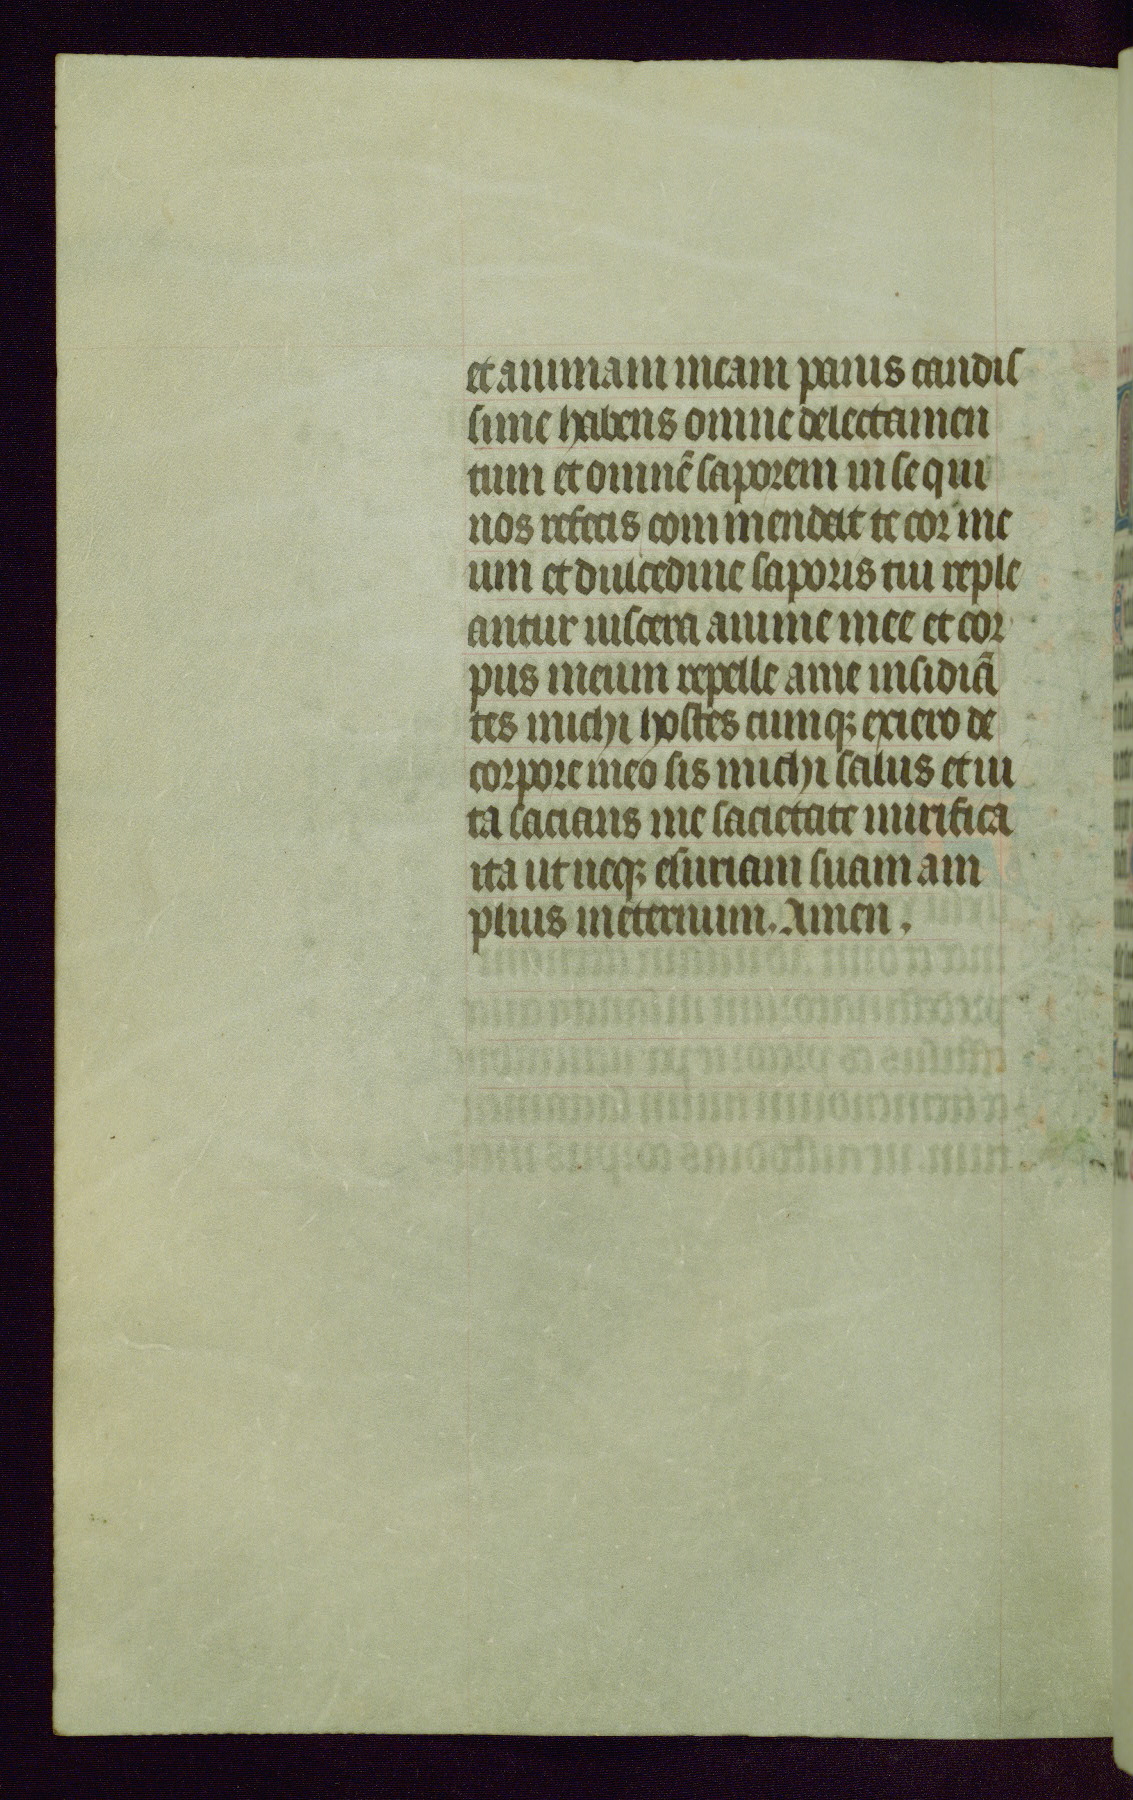 et animam meam panis candis
sime habens omne delectamen
tum et omnē saporem in se qui
nos reficis commendat te cor me
um et dulcedine saporis tui reple
antur uiscera anime mee et cor
pus meum repelle a me insidiā
tes michi hostes cumqꝫ exiero de
corpore meo sis michi salus et ui
ta sacians me sacietate mirifica
ita ut neqꝫ esuriam suam am
plius ineternum. Amen.